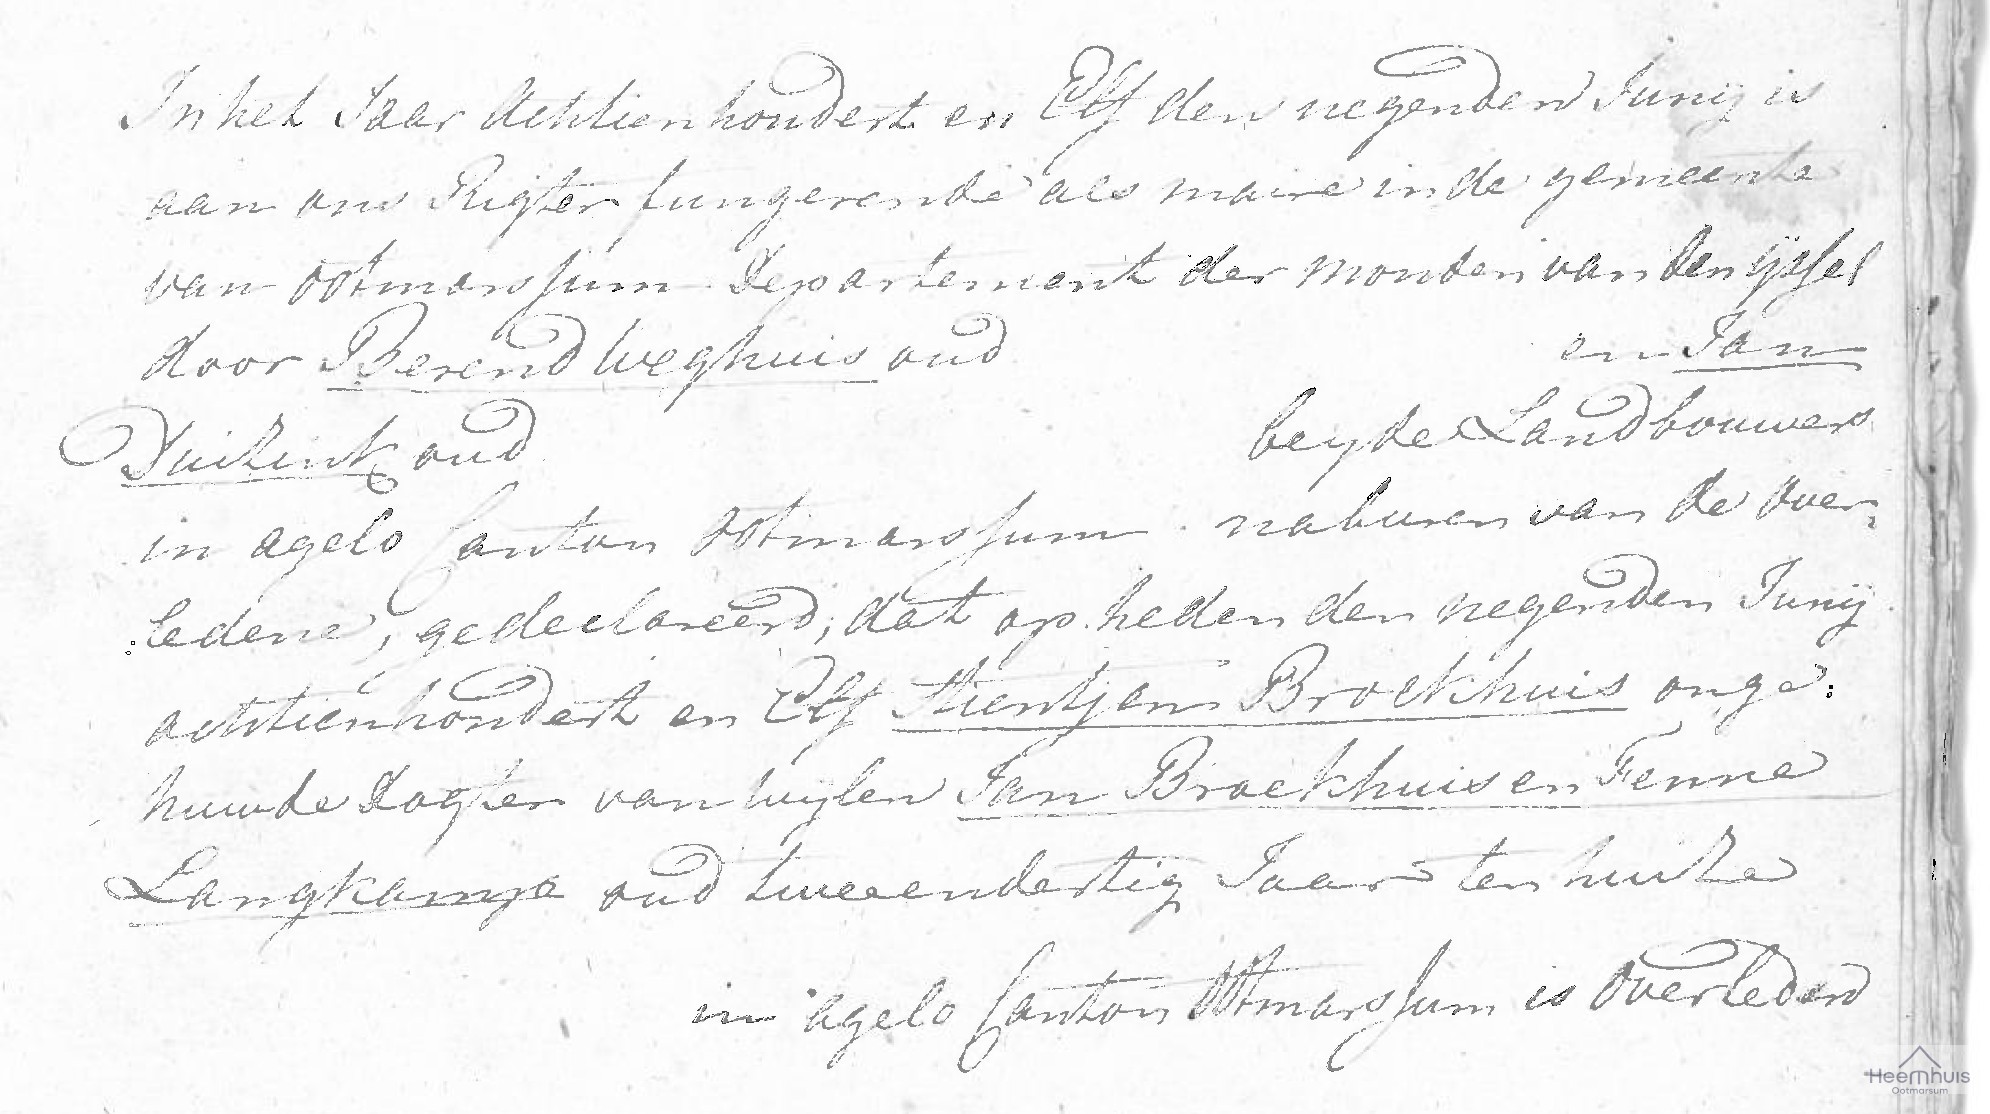 In het Jaar Achttienhondert en Elf den negenden Junij is
aan ons Rigter fungerende als maire in de gemeente
van ootmarssum Departement der monden van den ijssel
door Berend Weghuis oud en Jan
Duizink oud beyde Landbouwers
in agelo Canton ootmarssum naburen van de over:
:ledene, gedeclareerd, dat op heden den negenden Junij
achttienhondert en Elf Stientjen Broekhuis onge:
huwde Dogter van wijlen Jan Broekhuis en Fenne
Langkamp oud tweeendertig Jaar ten huize
in agelo Canton Ootmarssum is Overleden
Heemhuis
Ootmarsum